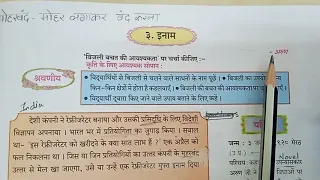 मोहरबंद - मोहर लगाकर बंद करना
३. इनाम
- अरुण
'बिजली बचत की आवश्यकता' पर चर्चा कीजिए :-
कृति के लिए आवश्यक सोपान :
श्रवणीय
• विद्यार्थियों से बिजली से चलने वाले साधनों के नाम पूछें । • बिजली का उपयोग
किन-किन क्षेत्रों में होता है कहलवाएँ । • बिजली की बचत की आवश्यकता पर
• विद्यार्थी द्वारा किए जाने वाले उपाय बताने के लिए कहें ।
India
देशी कंपनी ने रेफ्रीजरेटर बनाया और उसकी प्रसिद्धि के लिए विदेशी
विज्ञापन अपनाया । भारत भर में प्रतियोगिता का जुगाड़ किया । सवाल
था- 'इस रेफ्रीजरेटर को खरीदने के क्या सात लाभ हैं ?' एक अप्रैल को
फल निकलना था। जिस या जिन प्रतियोगियों का उत्तर कंपनी के मुहरबंद
उत्तर से मेल खा जाएगा, उसे या उन्हें एक रेफ्रीजरेटर मुफ्त इनाम दिया
जन्म :
परिचय
Novel